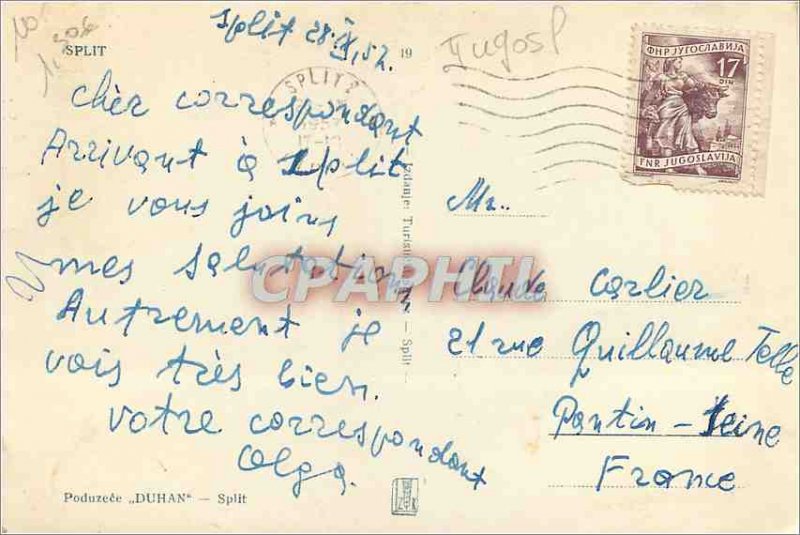 Split 28.IX.52.
SPLIT
19
Jugosl
SPLIT 2
ФНР ЈУГОСЛАВИЈА
17
DIN
FNR JUGOSLAVIJA
Cher correspondant
Arrivant à Split
je vous joins
mes salutation
Autrement je
vois très bien.
Votre correspondant
Olga.
Izdanje: Turisti
— Split —
Mr..
Claude Carlier
21 rue Quillaume Telle
Pantin - Seine
France
Poduzeće „DUHAN" — Split
CPAPHIL